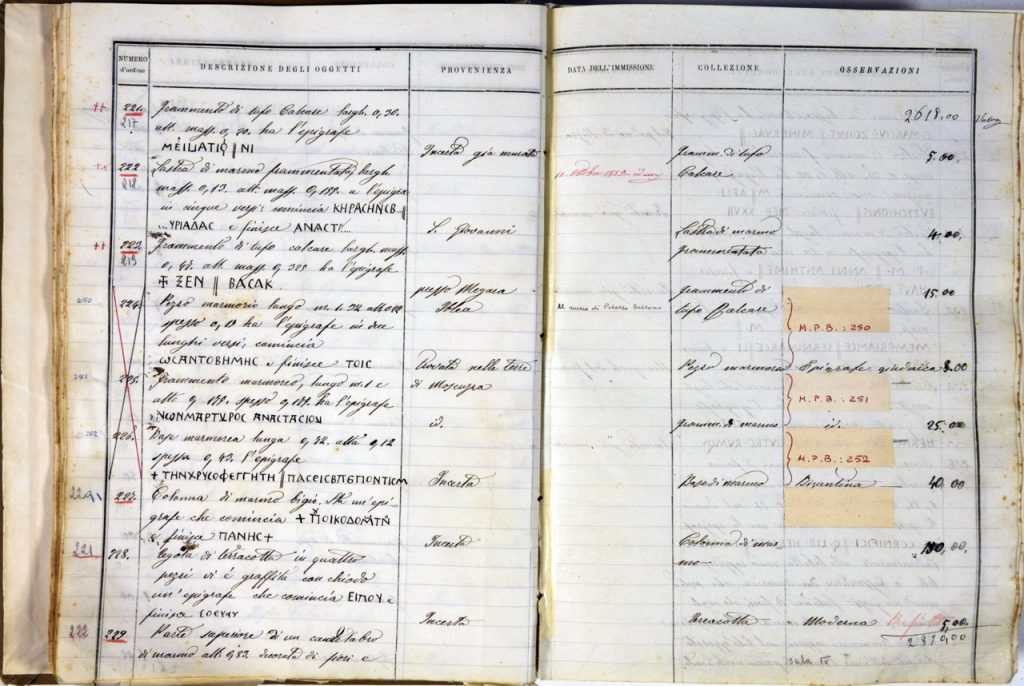 NUMERO d'ordine
DESCRIZIONE DEGLI OGGETTI
PROVENIENZA
DATA DELL'IMMISSIONE
COLLEZIONE
OSSERVAZIONI
2618,00
221. Frammento di tufo Calcare largh. 0,30.
217
att. mass. 0,20. ha l'epigrafe
ΜΕΙLΑΤΙΟ || ΝΙ
Incerta già murato
Framm. di tufo
Calcare
5.00,
222. Lastra di marmo frammentata, largh.
218
mass. 0,13. alt. mass. 0,188. a l'epigrafe
in cinque versi: comincia ΚΗΡΑСΗΝСΒ ||
...ΥΡΙΑΔΑС e finisce ΑΝΑСΤΑ...
S. Giovanni
Lastra di marmo
frammentata
4.00,
223. Frammento di tufo calcare largh. mass.
219
0,47. alt. mass. 0,325 ha l'epigrafe
ΞΕΝ || ΒΑСΑΚ
presso Megara
Iblea
Frammento di
tufo Calcare
15.00
250
224. Pezzo marmoreo lungo m. 1.32 alt. 0.18
spesso 0,19 ha l'epigrafe in due
lunghi versi: comincia
ωСΑΝΤΟΒΗΜΗС e finisce ΤΟΙС
Trovata nelle terre
di
Al museo di Palazzo Bellomo
M.P.B.: 250
Pezzo marmoreo
Epigrafe giudaica
8.00
251
225. Frammento marmoreo, lungo m. 1 e
alt. 0,188. spesso 0,188. ha l'epigrafe
ΝΕωΝΜΑΡΤΥΡΟС ΑΝΑСΤΑСΙΟΥ
id.
M.P.B.: 251
Framm. di marmo
id.
25.00
252
226. Base marmorea lunga 0,72. alta 0,12
spessa 0,43. l'epigrafe
+ ΤΗΝΧΡΥСΟΦΕΓΓΗΤΗ || ΠΑСΕΙСΒΠΕΠΟΝΤΙСΜ
Incerta
M.P.B.: 252
Base di marmo
Bizantina
40,00
227. Colonna di marmo bigio. Ha un'epi-
grafe che comincia
e finisce ΠΑΝΗС+
Incerta
Colonna di mar-
mo
221
228. Tegola di terracotta in quattro
pezzi vi è graffiti con chiodo
un'epigrafe che comincia ΕΙΠΟΥ e
finisce
Incerta
Terracotta
Moderna
5,00
2810,00
222
229. Parte superiore di un candelabro
di marmo alt. 0,82 decorata di fiori e
Sala IV